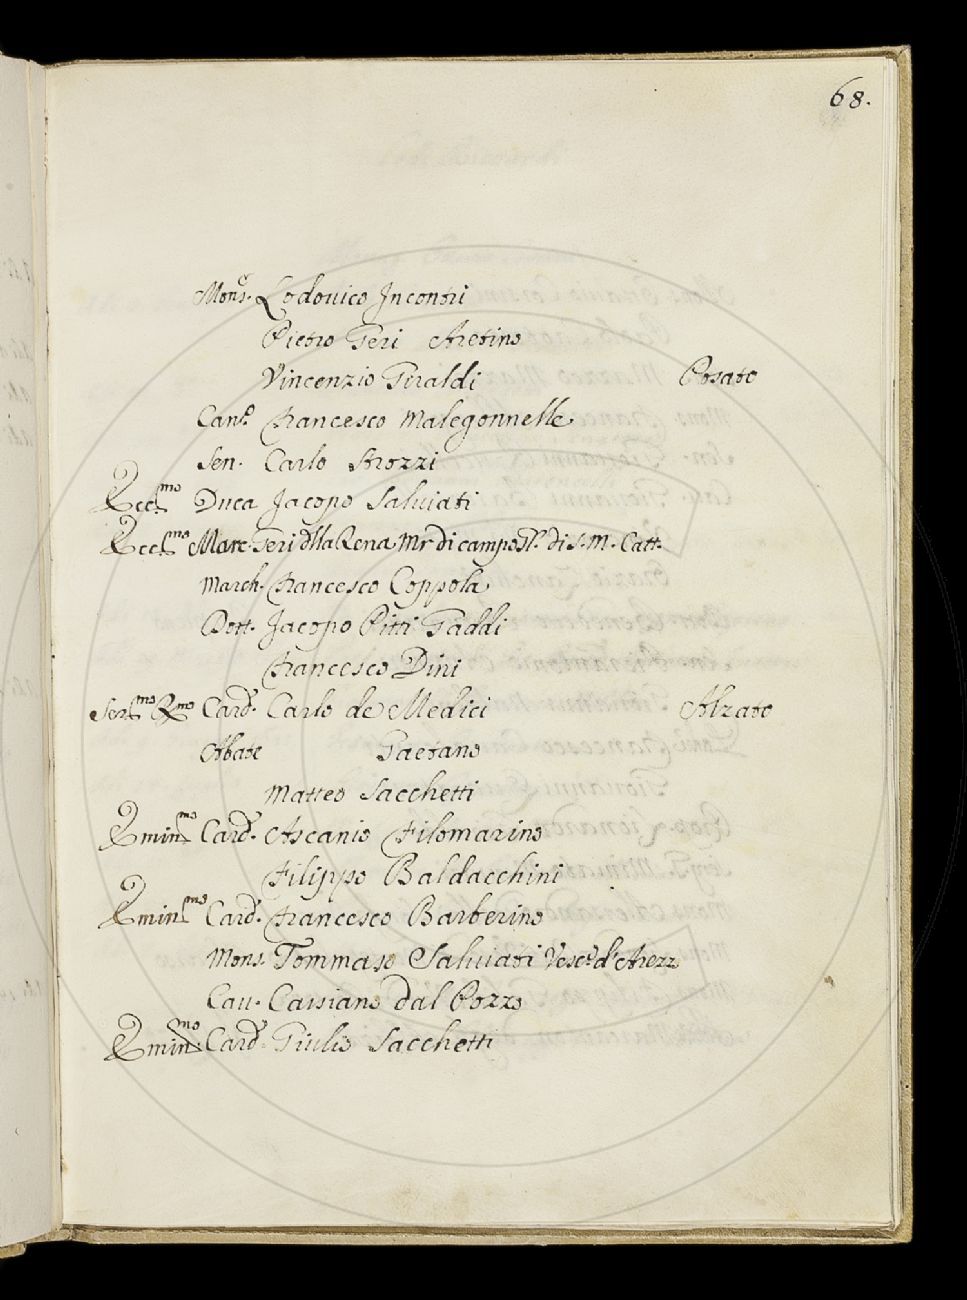 68.
Mons.r Lodovico Incontri
Pietro Geri Aretino
Vincenzio Giraldi Posato
Can.o Francesco Malegonnelle
Sen. Carlo Strozzi
Ecc.mo Duca Jacopo Salviati
Ecc.mo Marc. Geri dlla Rena Mr di campo di S. M. Catt.
March. Francesco Coppola
Dott. Jacopo Pitti Gaddi
Francesco Dini
Ser.mo R.mo Card. Carlo de Medici Alzato
Abate Gaetano
Matteo Sacchetti
Emin.mo Card. Ascanio Filomarino
Filippo Baldacchini
Emin.mo Card. Francesco Barberino
Mons. Tommaso Salviati Vesc.o d'Arezz
Cau. Cassiano dal Pozzo
Emin.mo Card. Giulio Sacchetti